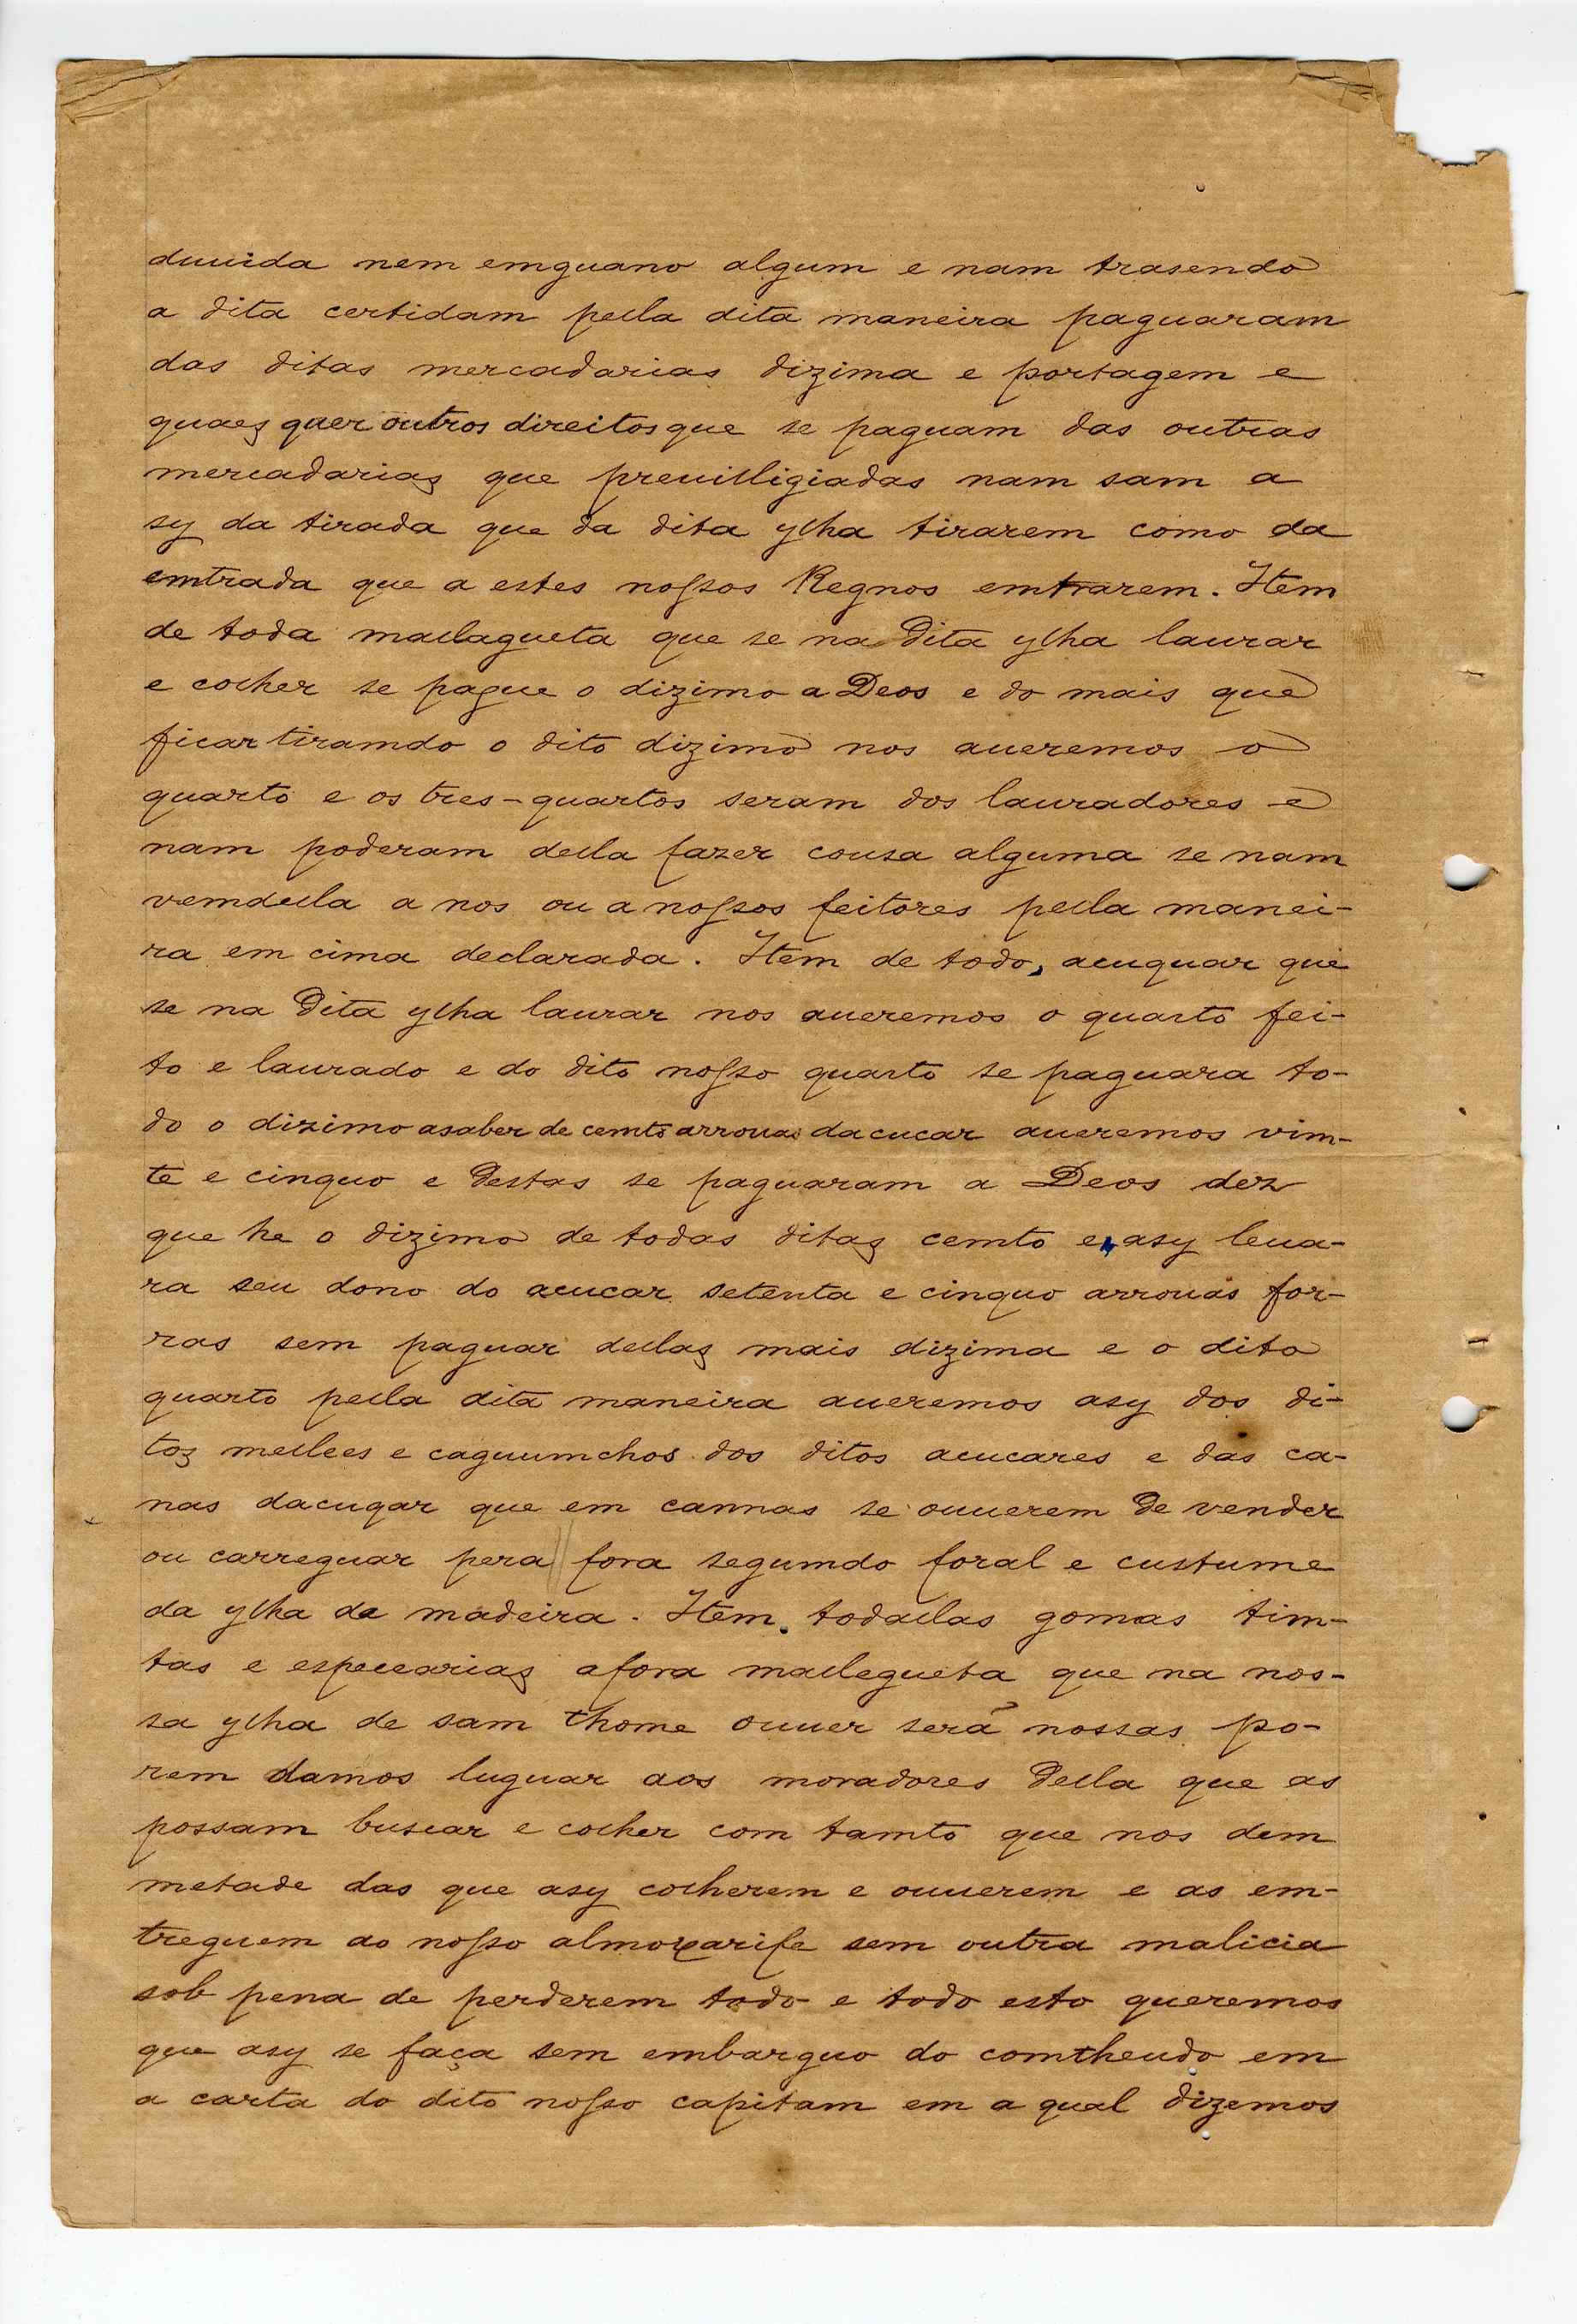 duuida nem emguano algum e nam trasendo
a dita certidam pella dita maneira paguaram
das ditas mercadarias dizima e portagem e
quaes quer outros direitos que se paguam das outras
mercadarias que preuilligiadas nam sam a
sy da tirada que da dita ylha tirarem como da
emtrada que a estes nossos Regnos emtrarem. Item
de toda mallagueta que se na dita ylha laurar
e colher se pague o dizimo a Deos e do mais que
ficar tiramdo o dito dizimo nos aueremos o
quarto e os tres-quartos seram dos lauradores e
nam poderam della fazer cousa alguma se nam
vemdella a nos ou a nossos feitores pella manei-
ra em cima declarada. Item de todo, acuquar que
se na dita ylha laurar nos aueremos o quarto fei-
to e laurado e do dito nosso quarto se paguara to-
do o dizimo asaber de cemto arrouas dacucar aueremos vim-
te e cinquo e destas se paguaram a Deos dez
que he o dizimo de todas ditas cemto e asy leua-
ra seu dono do acucar setenta e cinquo arrouas for-
ras sem paguar dellas mais dizima e o dito
quarto pella dita maneira aueremos asy dos di-
tos mellees e caguumchos dos ditos acucares e das ca-
nas dacuqar que em cannas se ouuerem de vender
ou carreguar pera fora segumdo foral e custume
da ylha da madeira. Item. todallas gomas tim-
tas e especearias afora mallegueta que na nos-
sa ylha de sam thome ouuer será nossas po-
rem damos luguar aos moradores della que as
possam buscar e colher com tamto que nos dem
metade das que asy colherem e ouuerem e as em-
treguem ao nosso almoxarife sem outra malicia
sob pena de perderem todo e todo esto queremos
que asy se faça sem embarguo do comtheudo em
a carta do dito nosso capitam em a qual dizemos